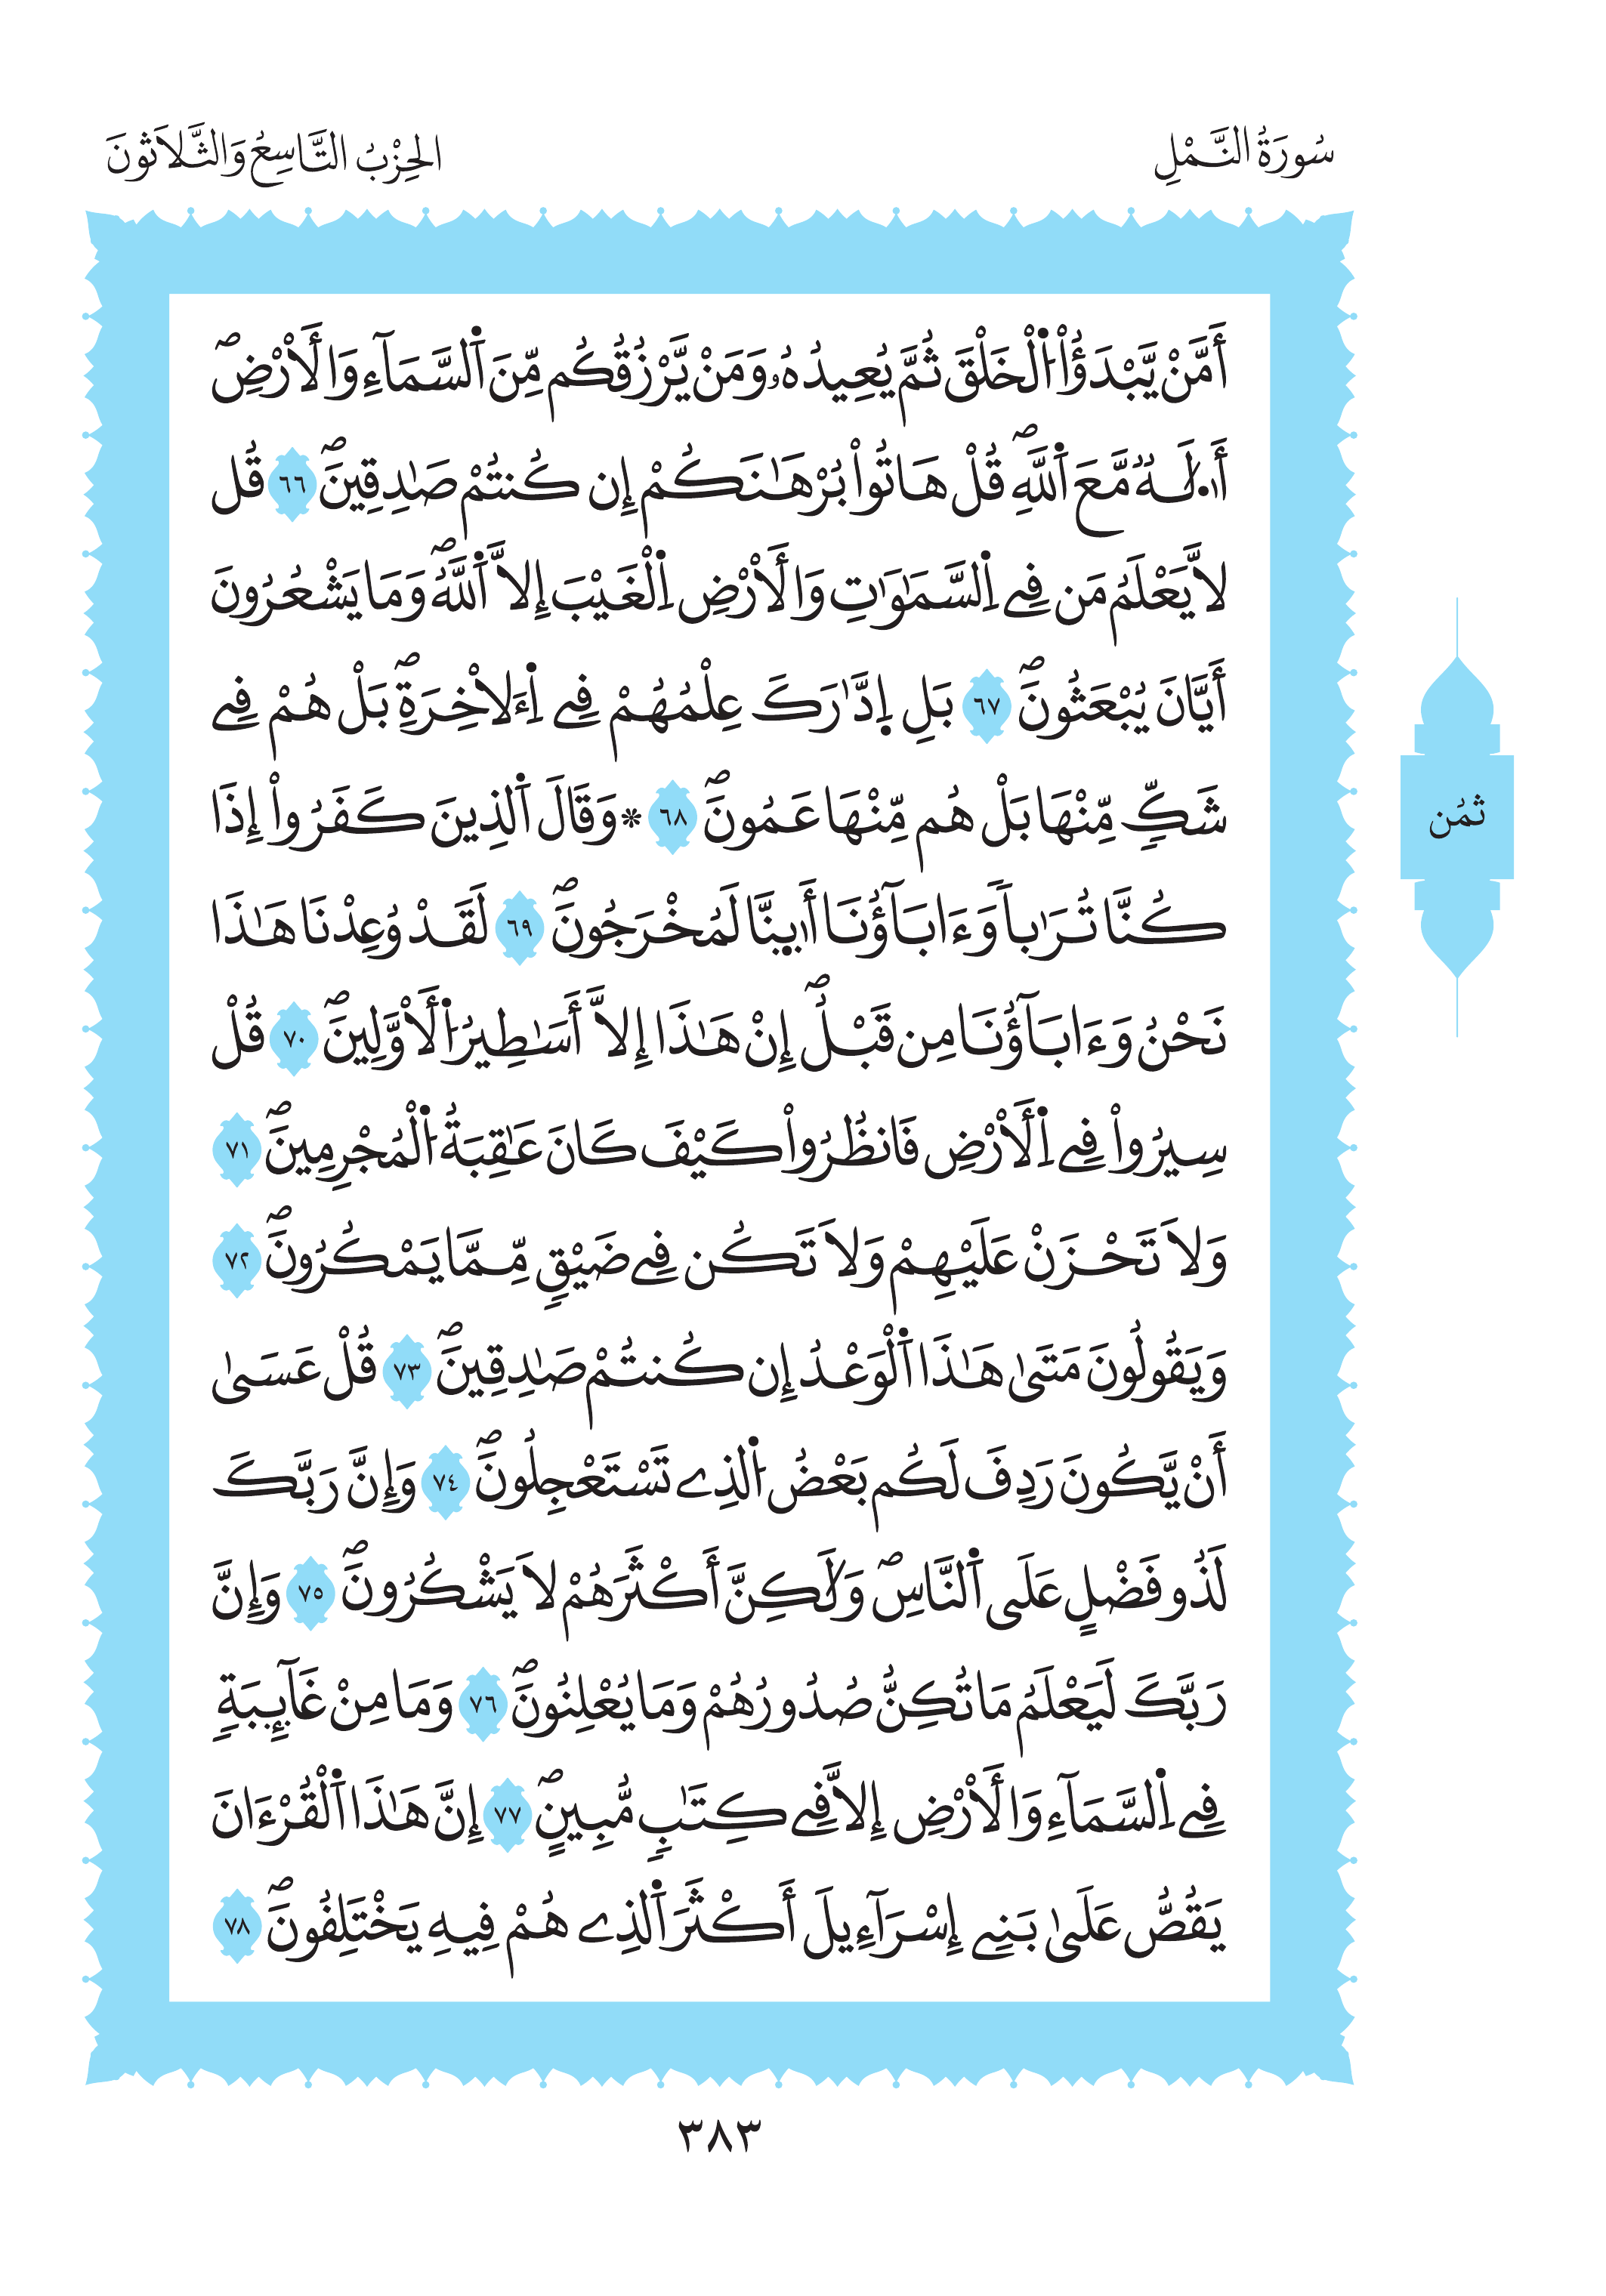 سُورَةُ النَّمْلِ
الحِزْبُ التَّاسِعُ وَالثَّلاَثُونَ
أَمَّنْ يَّبْدَؤُاْ اُ۬لْخَلْقَ ثُمَّ يُعِيدُهُۥ وَمَنْ يَّرْزُقُكُم مِّنَ اَ۬لسَّمَآءِ وَالَارْضِۖ
أَ۟لَٰهٞ مَّعَ اَ۬للَّهِۖ قُلْ هَاتُواْ بُرْهَٰنَكُمْ إِن كُنتُمْ صَٰدِقِينَۖ ٦٦ قُل
لاَّ يَعْلَمُ مَن فِے اِ۬لسَّمَٰوَٰتِ وَالَارْضِ اِ۬لْغَيْبَ إِلاَّ اَ۬للَّهُۖ وَمَا يَشْعُرُونَ
أَيَّانَ يُبْعَثُونَۖ ٦٧ بَلِ اِ۪دَّٰرَكَ عِلْمُهُمْ فِے اِ۬ءَلاخِرَةِۖ بَلْ هُمْ فِے
شَكّٖ مِّنْهَا بَلْ هُم مِّنْهَا عَمُونَۖ ٦٨ ۞وَقَالَ اَ۬لذِينَ كَفَرُواْ إِذَا
كُنَّا تُرَٰباٗ وَءَابَآؤُنَا أَ۟ى۪نَّا لَمُخْرَجُونَۖ ٦٩ لَقَدْ وُعِدْنَا هَٰذَا
نَحْنُ وَءَابَآؤُنَا مِن قَبْلُۖ إِنْ هَٰذَا إِلاَّ أَسَٰطِيرُ اُ۬لَاوَّلِينَۖ ٧٠ قُلْ
سِيرُواْ فِے اِ۬لَارْضِ فَانظُرُواْ كَيْفَ كَانَ عَٰقِبَةُ اُ۬لْمُجْرِمِينَۖ ٧١
وَلاَ تَحْزَنْ عَلَيْهِمْ وَلاَ تَكُن فِے ضَيْقٖ مِّمَّا يَمْكُرُونَۖ ٧٢
وَيَقُولُونَ مَتَىٰ هَٰذَا اَ۬لْوَعْدُ إِن كُنتُمْ صَٰدِقِينَۖ ٧٣ قُلْ عَسَىٰ
أَنْ يَّكُونَ رَدِفَ لَكُم بَعْضُ اُ۬لذِے تَسْتَعْجِلُونَۖ ٧٤ وَإِنَّ رَبَّكَ
لَذُو فَضْلٍ عَلَى اَ۬لنَّاسِۖ وَلَٰكِنَّ أَكْثَرَهُمْ لاَ يَشْكُرُونَۖ ٧٥ وَإِنَّ
رَبَّكَ لَيَعْلَمُ مَا تُكِنُّ صُدُورُهُمْ وَمَا يُعْلِنُونَۖ ٧٦ وَمَا مِنْ غَآئِبَةٖ
فِے اِ۬لسَّمَآءِ وَالَارْضِ إِلاَّ فِے كِتَٰبٖ مُّبِينٍۖ ٧٧ إِنَّ هَٰذَا اَ۬لْقُرْءَانَ
يَقُصُّ عَلَىٰ بَنِے إِسْرَآءِيلَ أَكْثَرَ اَ۬لذِے هُمْ فِيهِ يَخْتَلِفُونَۖ ٧٨
ثمُن
٣٨٣